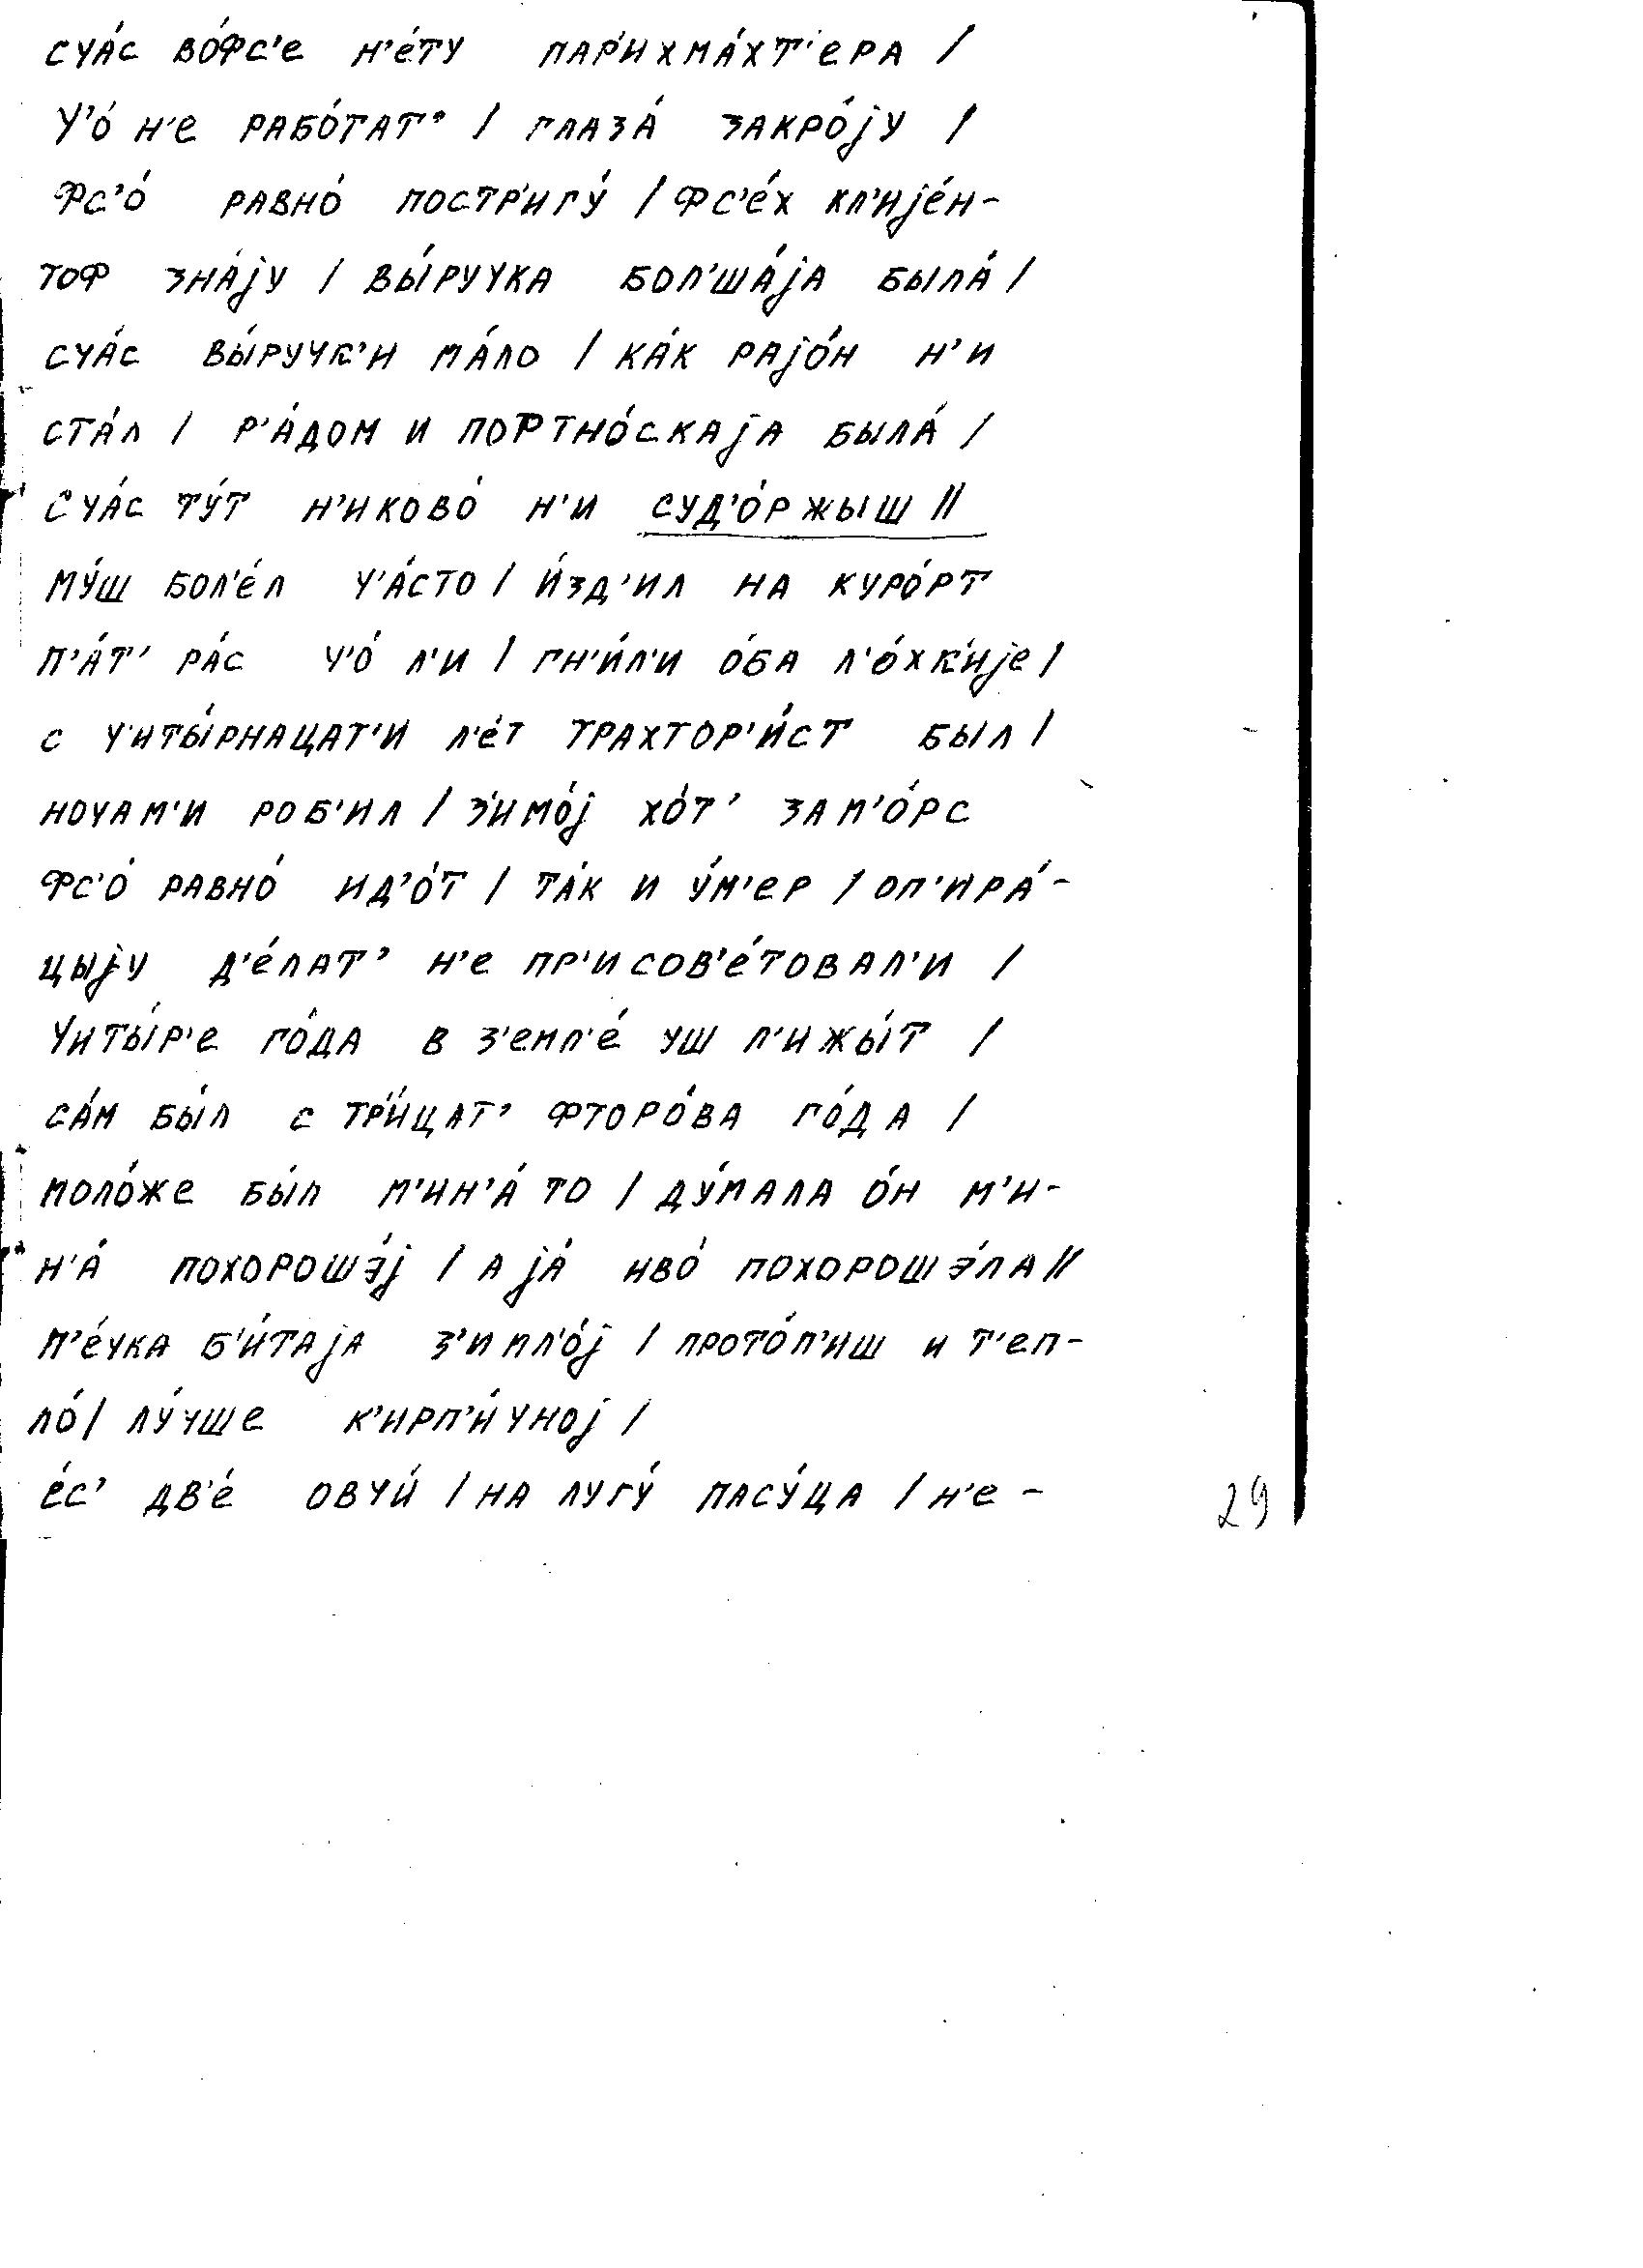 сча́с во́фс'е н'е́ту пар'ихма́хт'ера /
ч'о́ н'е рабо́тат' / глаза́ закро́jу /
фс'о́ равно́ постр'игу́ / фс'е́х кл'иjе́н-
тоф зна́jу / вы́ручка бол'ша́jа была́ /
сча́с вы́ручк'и ма́ло / ка́к раjо́н н'и
ста́л / р'а́дом и портно́скаjа была́ /
сча́с ту́т н'иково́ н'и суд'о́ржыш //
му́ш бол'е́л ч'а́сто / и́зд'ил на куро́рт
п'а́т' ра́с ч'о́ л'и / гн'и́л'и о́ба л'о́хк'иjе /
с ч'иты́рнацат'и л'е́т трахтор'и́ст был /
ночам'и роб'ил / з'имо́j хо́т' зам'о́рс
фс'о́ равно́ ид'о́т / та́к и у́м'ер / оп'ира́-
цыjу д'е́лат' н'е пр'исов'е́товал'и /
читы́р'е го́да в з'емл'е́ уш л'ижы́т /
са́м бы́л с тр'и́цат' фторо́ва го́да /
моло́же бы́л м'ин'а́ то / ду́мала о́н м'и-
н'а́ похорошэ́j / а jа́ иво́ похорошэ́ла //
п'е́чка б'и́таjа з'имл'о́j / прото́п'иш и т'еп-
ло́ / лу́чше к'ирп'и́чноj /
е́с' дв'е́ овчи́ / на лугу́ пасу́ца / н'е -
29